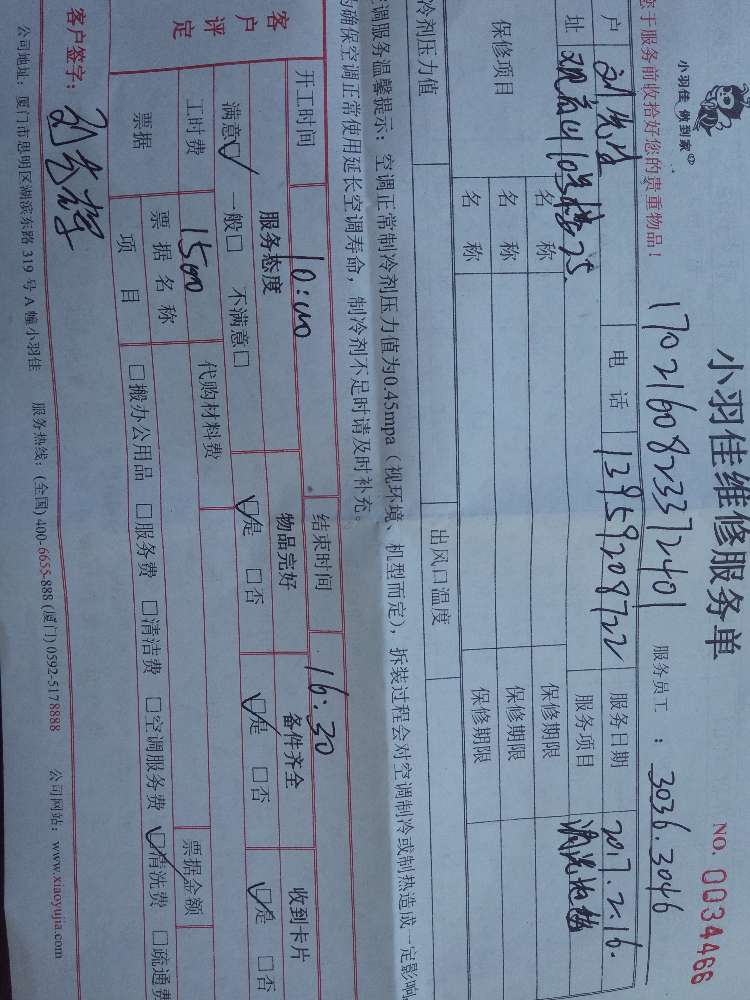 小羽佳 侠到家
小羽佳维修服务单
NO. 0034466
1702160823372401
服务员工 : 3036.3046
您于服务前收拾好您的贵重物品！
户 刘先生 电话 13959208722 服务日期 2017.2.16.
址 服务项目
保修项目 名称 保修期限
名称 保修期限
名称 保修期限
冷剂压力值 出风口温度
调服务温馨提示：空调正常制冷剂压力值为0.45mpa（视环境、机型而定），拆装过程会对空调制冷或制热造成一定影响
确保空调正常使用延长空调寿命，制冷剂不足时请及时补充。
开工时间 10:00 结束时间 16:30
客户评定 服务态度 物品完好 备件齐全 收到卡片
满意□ 一般□ 不满意□ □是 □否 □是 □否 □是 □否
工时费 1500 代购材料费 票据金额
票据 票据名称
项目 □搬办公用品 □服务费 □清洁费 □空调服务费 □清洗费 □疏通费
客户签字：
公司地址：厦门市思明区湖滨东路 319 号 A 幢小羽佳 服务热线：(全国) 400-6655-888 (厦门) 0592-5178888 公司网站：www.xiaoyujia.com